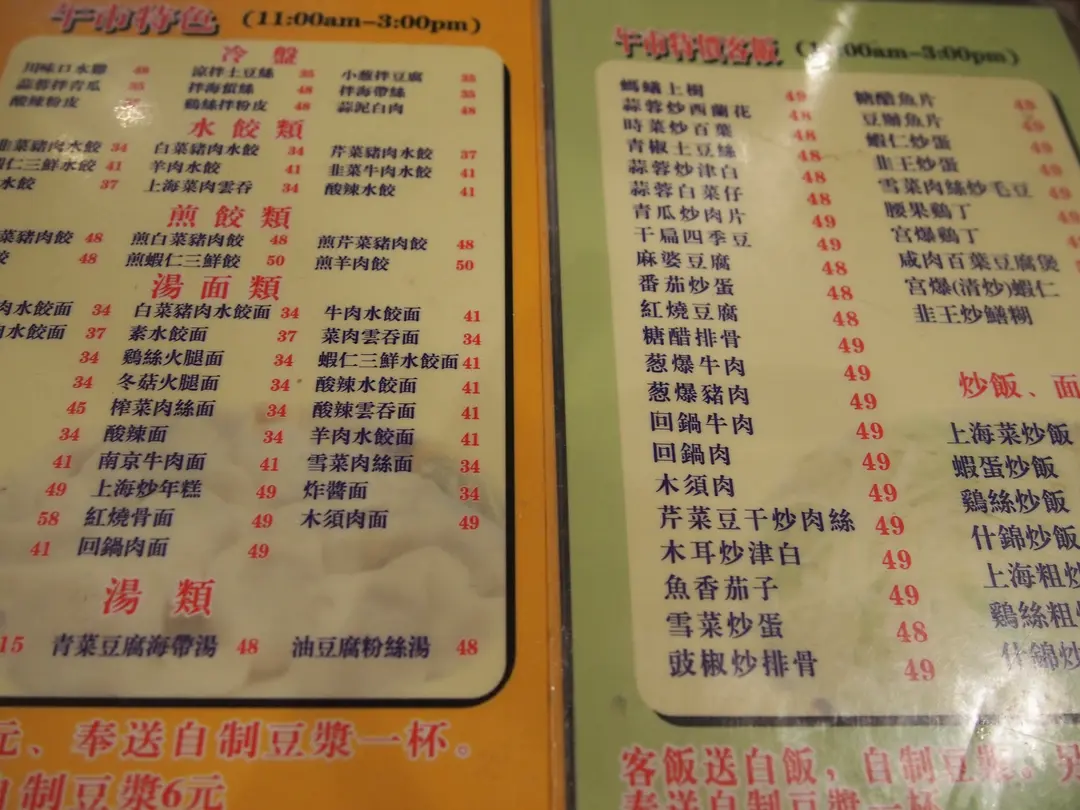 午市特色 (11:00am-3:00pm)
冷盤
川味口水雞 48 涼拌土豆絲 35 小葱拌豆腐 35
蒜蓉拌青瓜 35 拌海蜇絲 48 拌海帶絲 35
酸辣粉皮 鷄絲拌粉皮 48 蒜泥白肉 48
水餃類
韭菜豬肉水餃 34 白菜豬肉水餃 34 芹菜豬肉水餃 37
蝦仁三鮮水餃 41 羊肉水餃 41 韭菜牛肉水餃 41
水餃 37 上海菜肉雲吞 34 酸辣水餃 41
煎餃類
菜豬肉餃 48 煎白菜豬肉餃 48 煎芹菜豬肉餃 48
餃 48 煎蝦仁三鮮餃 50 煎羊肉餃 50
湯面類
肉水餃面 34 白菜豬肉水餃面 34 牛肉水餃面 41
肉水餃面 37 素水餃面 37 菜肉雲吞面 34
34 鷄絲火腿面 34 蝦仁三鮮水餃面 41
34 冬菇火腿面 34 酸辣水餃面 41
45 榨菜肉絲面 34 酸辣雲吞面 41
34 酸辣面 34 羊肉水餃面 41
41 南京牛肉面 41 雪菜肉絲面 34
49 上海炒年糕 49 炸醬面 34
58 紅燒骨面 49 木須肉面 49
41 回鍋肉面 49
湯類
15 青菜豆腐海帶湯 48 油豆腐粉絲湯 48
元、奉送自制豆漿一杯。
自制豆漿6元
午市特價客飯 (11:00am-3:00pm)
螞蟻上樹 49
蒜蓉炒西蘭花 48
時菜炒百葉 48
青椒土豆絲 48
蒜蓉炒津白 48
蒜蓉白菜仔 48
青瓜炒肉片 49
干扁四季豆 49
麻婆豆腐 48
番茄炒蛋 48
紅燒豆腐 48
糖醋排骨 49
葱爆牛肉 49
葱爆豬肉 49
回鍋牛肉 49
回鍋肉 49
木須肉 49
芹菜豆干炒肉絲 49
木耳炒津白 49
魚香茄子 49
雪菜炒蛋 48
豉椒炒排骨 49
糖醋魚片 49
豆瓣魚片 49
蝦仁炒蛋 49
韭王炒蛋 49
雪菜肉絲炒毛豆 49
腰果鷄丁 49
宮爆鷄丁
咸肉百葉豆腐煲
宮爆(清炒)蝦仁
韭王炒鱔糊
炒飯、面
上海菜炒飯
蝦蛋炒飯
鷄絲炒飯
什錦炒飯
上海粗炒
鷄絲粗
什錦炒
客飯送白飯，自制豆漿。另
奉送自制豆漿一杯